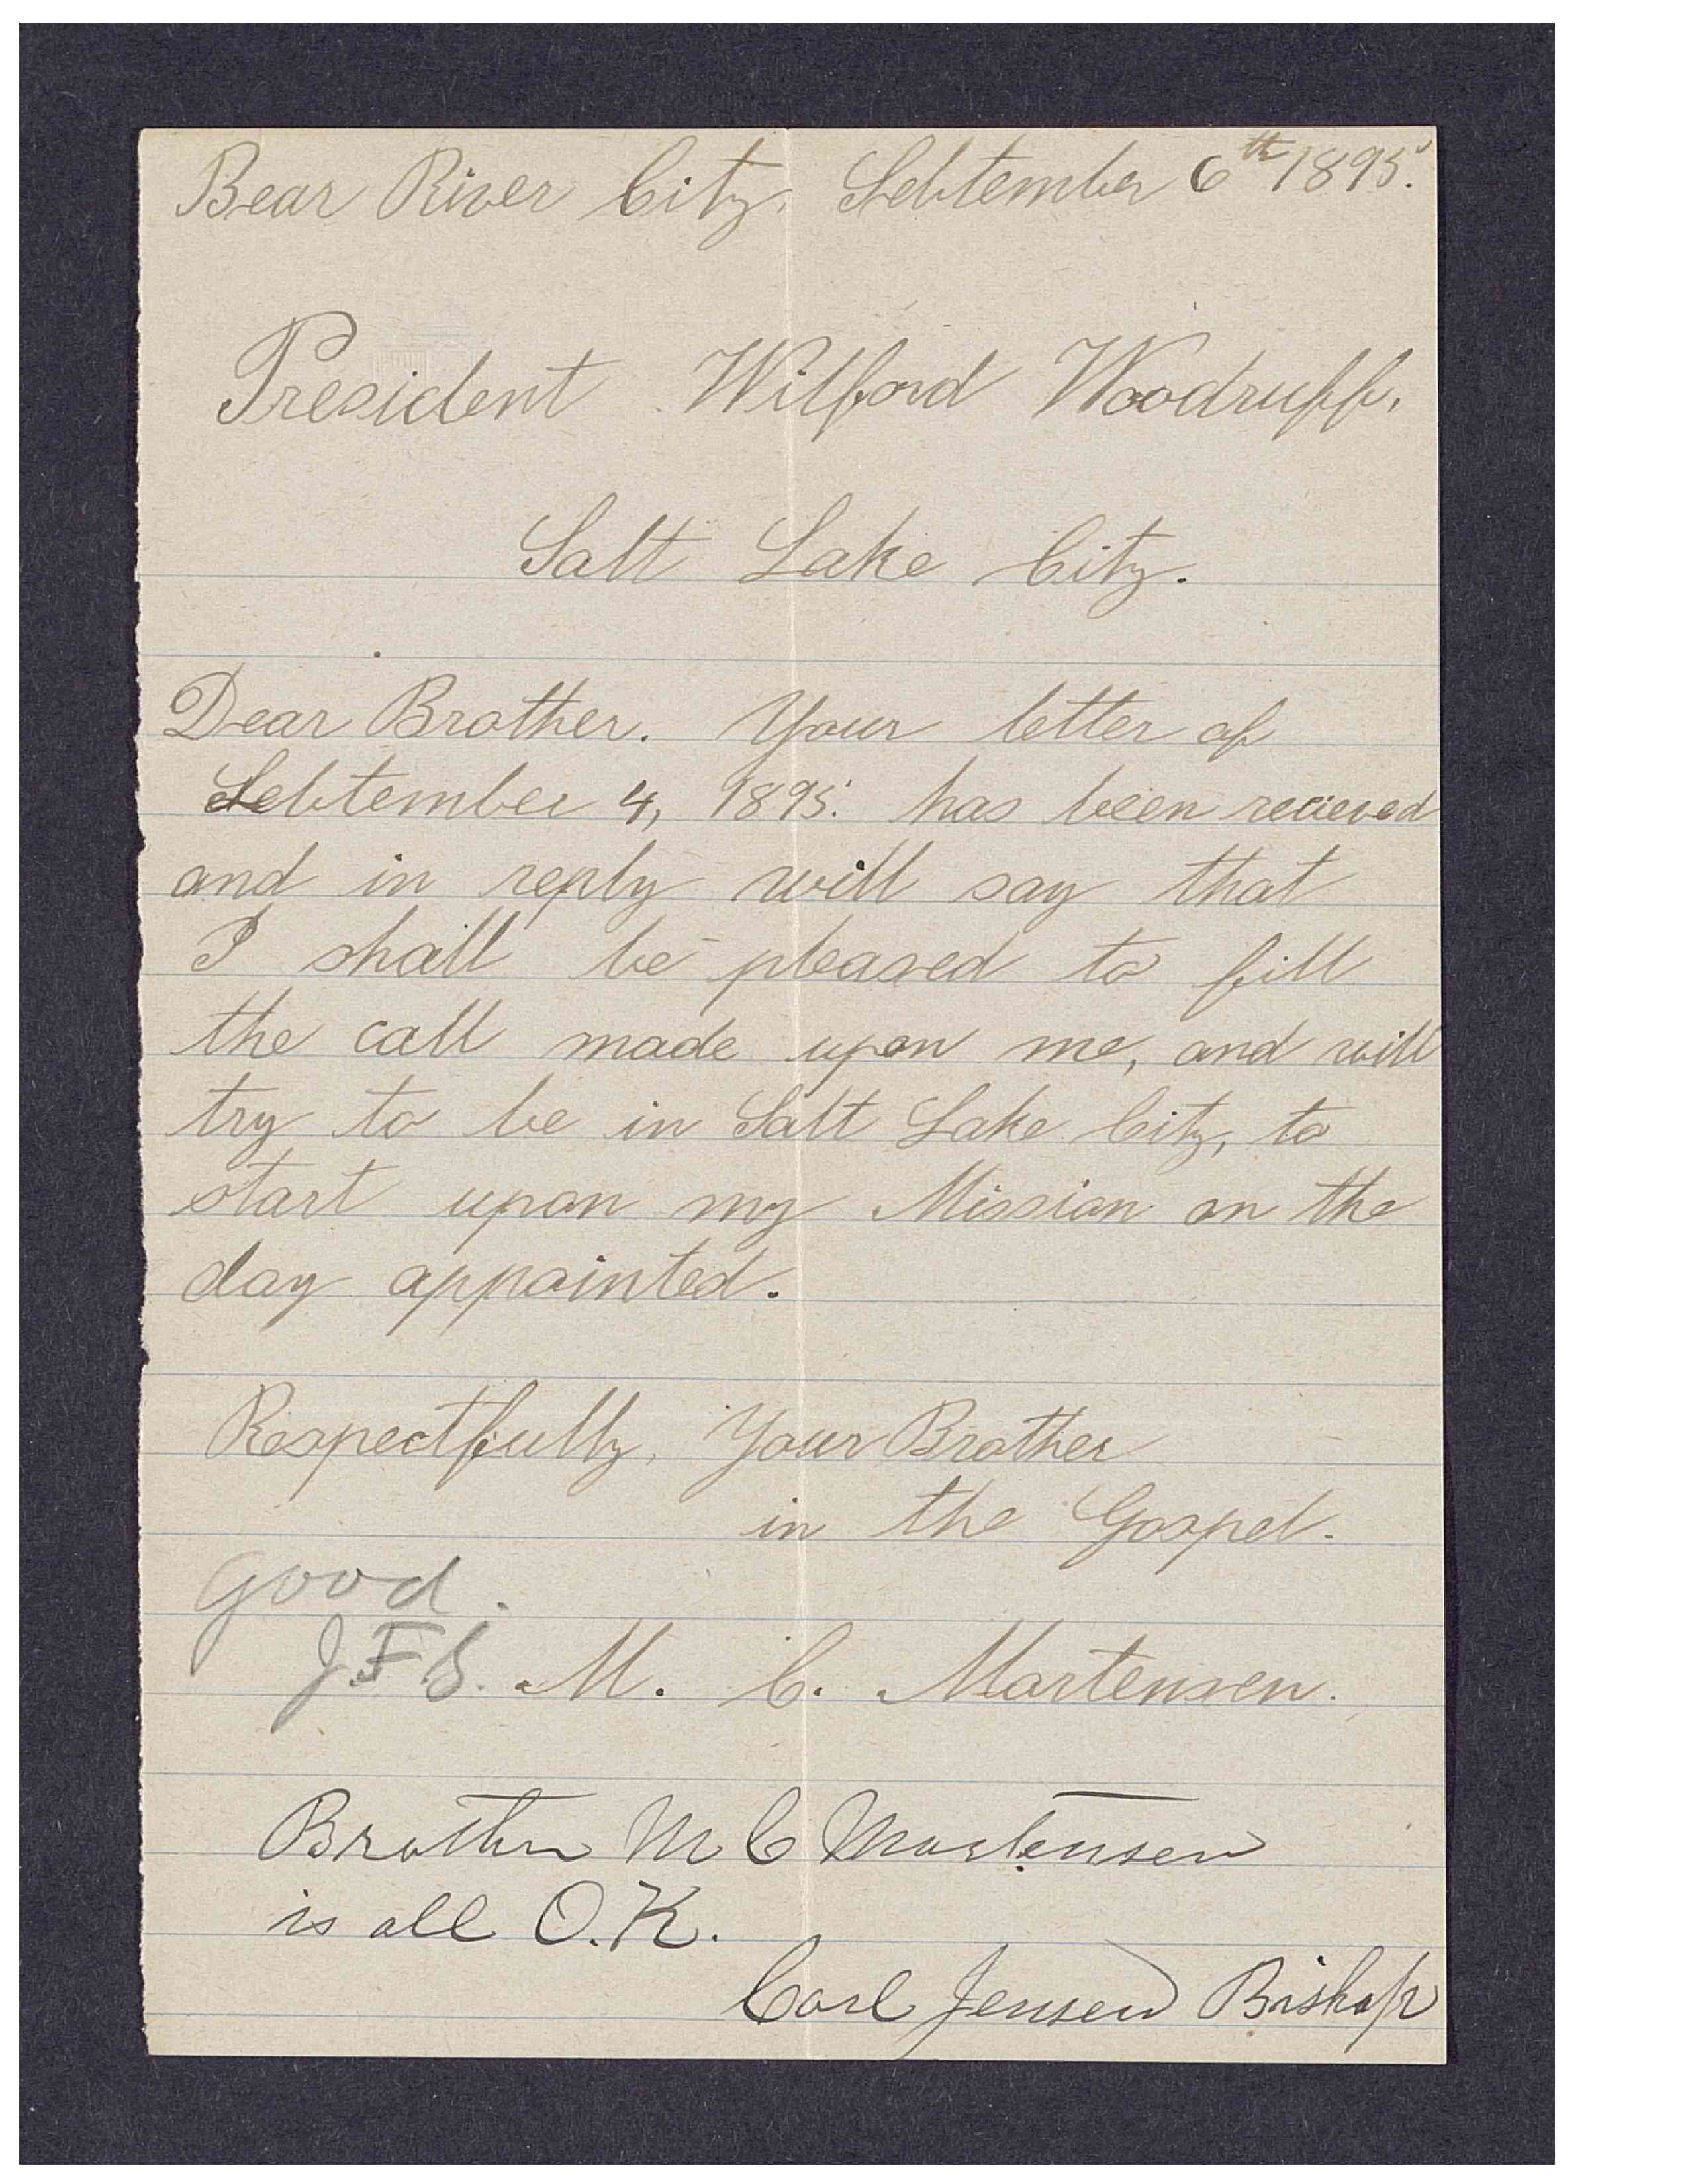 Bear River City, Sebtember 6th 1895.
President Wilford Woodruff,
Salt Lake City.
Dear Brother. Your letter of
Sebtember 4, 1895. has been recieved
and in reply will say that
I shall be pleased to fill
the call made upon me, and will
try to be in Salt Lake City, to
start upon my Mission on the
day appointed.
Respectfully, Your Brother
in the Gospel.
Good.
J.F.S. M. C. Mortensen.
Brother M C Mortensen
is all O.K.
Carl Jensen Bishop